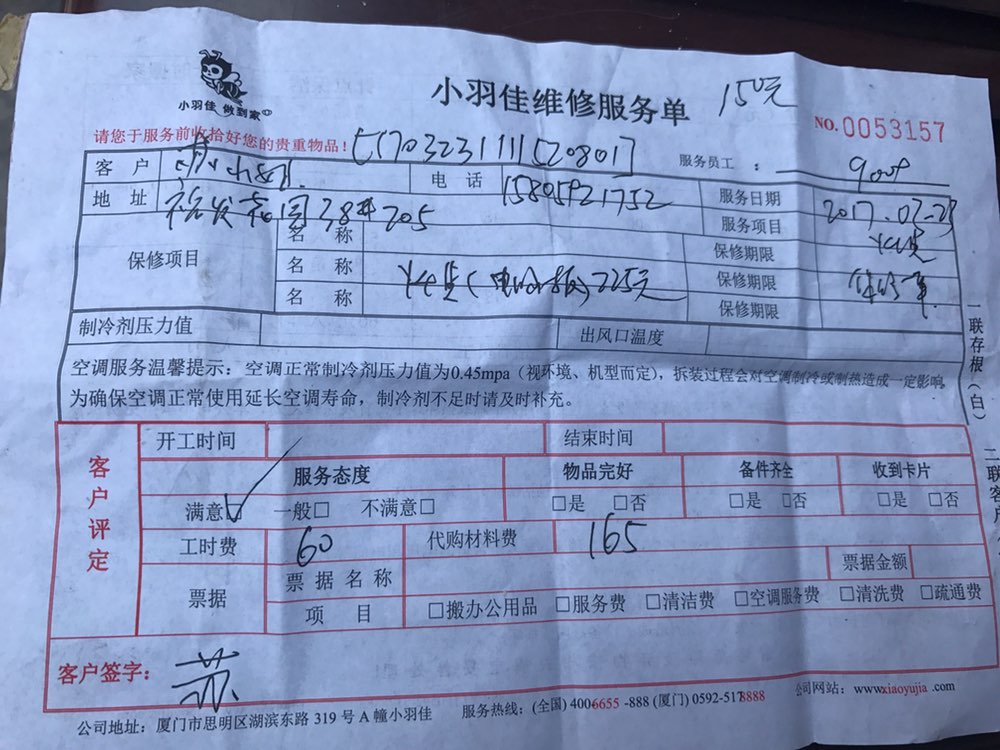 小羽佳 做到家
小羽佳维修服务单 150元
NO.0053157
请您于服务前收拾好您的贵重物品!
服务员工:
客户 小姐 电话 15805921752 服务日期 2017.03-23
地址 38# 205 服务项目
保修项目 名称 保修期限
名称 225元 保修期限
名称 保修期限
制冷剂压力值 出风口温度
空调服务温馨提示:空调正常制冷剂压力值为0.45mpa(视环境、机型而定),拆装过程会对空调制冷或制热造成一定影响,
为确保空调正常使用延长空调寿命,制冷剂不足时请及时补充。
一联存根(白)
二联客户
客户评定
开工时间 结束时间
服务态度 物品完好 备件齐全 收到卡片
满意□ 一般□ 不满意□ □是 □否 □是 □否 □是 □否
工时费 60 代购材料费 165
票据 票据名称 票据金额
项目 □搬办公用品 □服务费 □清洁费 □空调服务费 □清洗费 □疏通费
客户签字: 苏
公司地址:厦门市思明区湖滨东路 319 号 A 幢小羽佳 服务热线:(全国) 4006655 -888 (厦门) 0592-5178888 公司网站:www.xiaoyujia .com